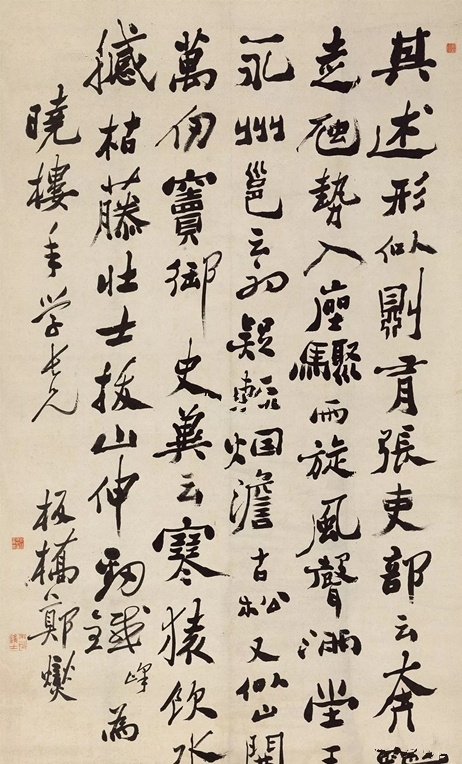 其述形似則有張吏部云奔
走虺勢入座驟雨旋風聲滿堂王
永州邕云初疑輕烟澹古松又似山開
萬仞竇御史冀云寒猿飲水
撼枯藤壯士拔山伸勁鐵 峰為
曉樓年学兄
板橋鄭燮